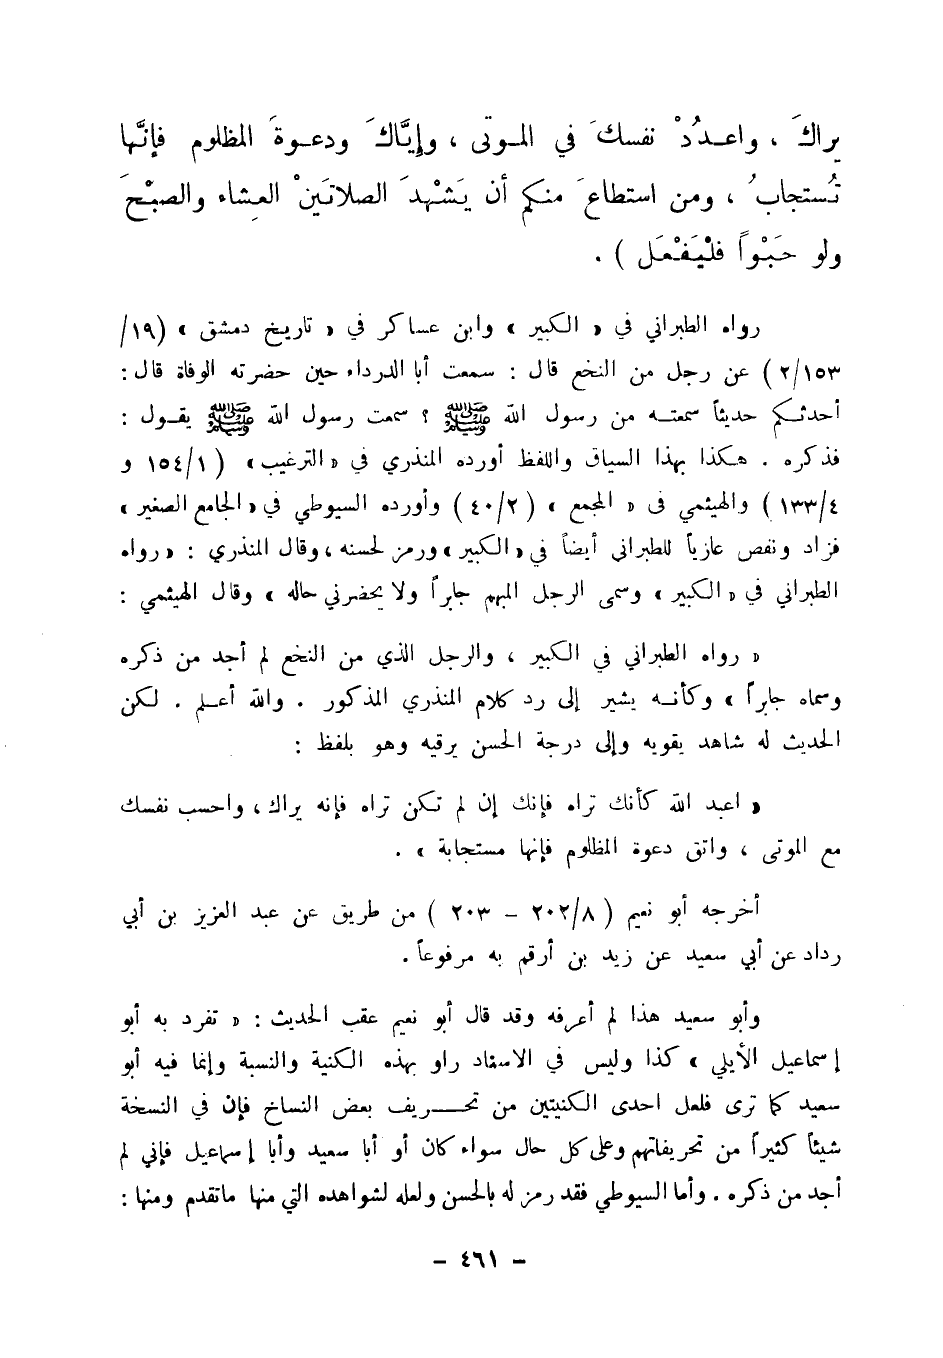 يراكَ ، واعـدُدْ نفسكَ في المـوتى ، وإيَّاكَ ودعـوةَ المظلوم فإنَّها
تُستجابُ ، ومن استطاعَ منكم أن يَشْهدَ الصلاتَينْ العشاء والصبْحَ
ولو حَبْواً فلْيَفْعَل ) .
رواه الطبراني في « الكبير » وابن عساكر في « تاريخ دمشق » (١٩/
٢/١٥٣) عن رجل من النخع قال : سمعت أبا الدرداء حين حضرته الوفاة قال :
أحدثكم حديثاً سمعتـه من رسول الله ﷺ ؟ سمعت رسول الله ﷺ يقـول :
فذكره . هكذا بهذا السياق واللفظ أورده المنذري في «الترغيب» ( ١٥٤/١ و
١٣٣/٤ ) والهيثمي في « المجمع » ( ٤٠/٢ ) وأورده السيوطي في «الجامع الصغير »
فزاد ونقص عازياً للطبراني أيضاً في «الكبير» ورمز لحسنه ، وقال المنذري : « رواه
الطبراني في « الكبير » وسمى الرجل المبهم جابراً ولا يحضرني حاله » وقال الهيثمي :
« رواه الطبراني في الكبير ، والرجل الذي من النخع لم أجد من ذكره
وسماه جابراً » وكأنـه يشير إلى رد كلام المنذري المذكور . والله أعـلم . لكن
الحديث له شاهد يقويه وإلى درجة الحسن يرقيه وهو بلفظ :
« اعبد الله كأنك تراه فإنك إن لم تكن تراه فإنه يراك ، واحسب نفسك
مع الموتى ، واتق دعوة المظلوم فإنها مستجابة » .
أخرجه أبو نعيم ( ٢٠٢/٨ – ٢٠٣ ) من طريق عن عبد العزيز بن أبي
رداد عن أبي سعيد عن زيد بن أرقم به مرفوعاً .
وأبو سعيد هذا لم أعرفه وقد قال أبو نعيم عقب الحديث : « تفرد به أبو
إسماعيل الأيلي » كذا وليس في الاسناد راو بهذه الكنية والنسبة وإنما فيه أبو
سعيد كما ترى فلعل احدى الكنيتين من تحـريف بعض النساخ فإن في النسخة
شيئاً كثيراً من تحريفاتهم وعلى كل حال سواء كان أو أبا سعيد وأبا إسماعيل فإني لم
أجد من ذكره . وأما السيوطي فقد رمز له بالحسن ولعله لشواهده التي منها ماتقدم ومنها :
– ٤٦١ –